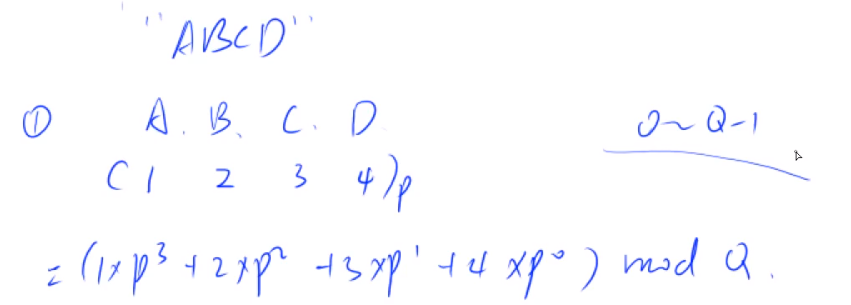 "ABCD"
① A. B. C. D 0~Q-1
(1 2 3 4)p
= (1×p³ + 2×p² + 3×p¹ + 4×p⁰) mod Q.